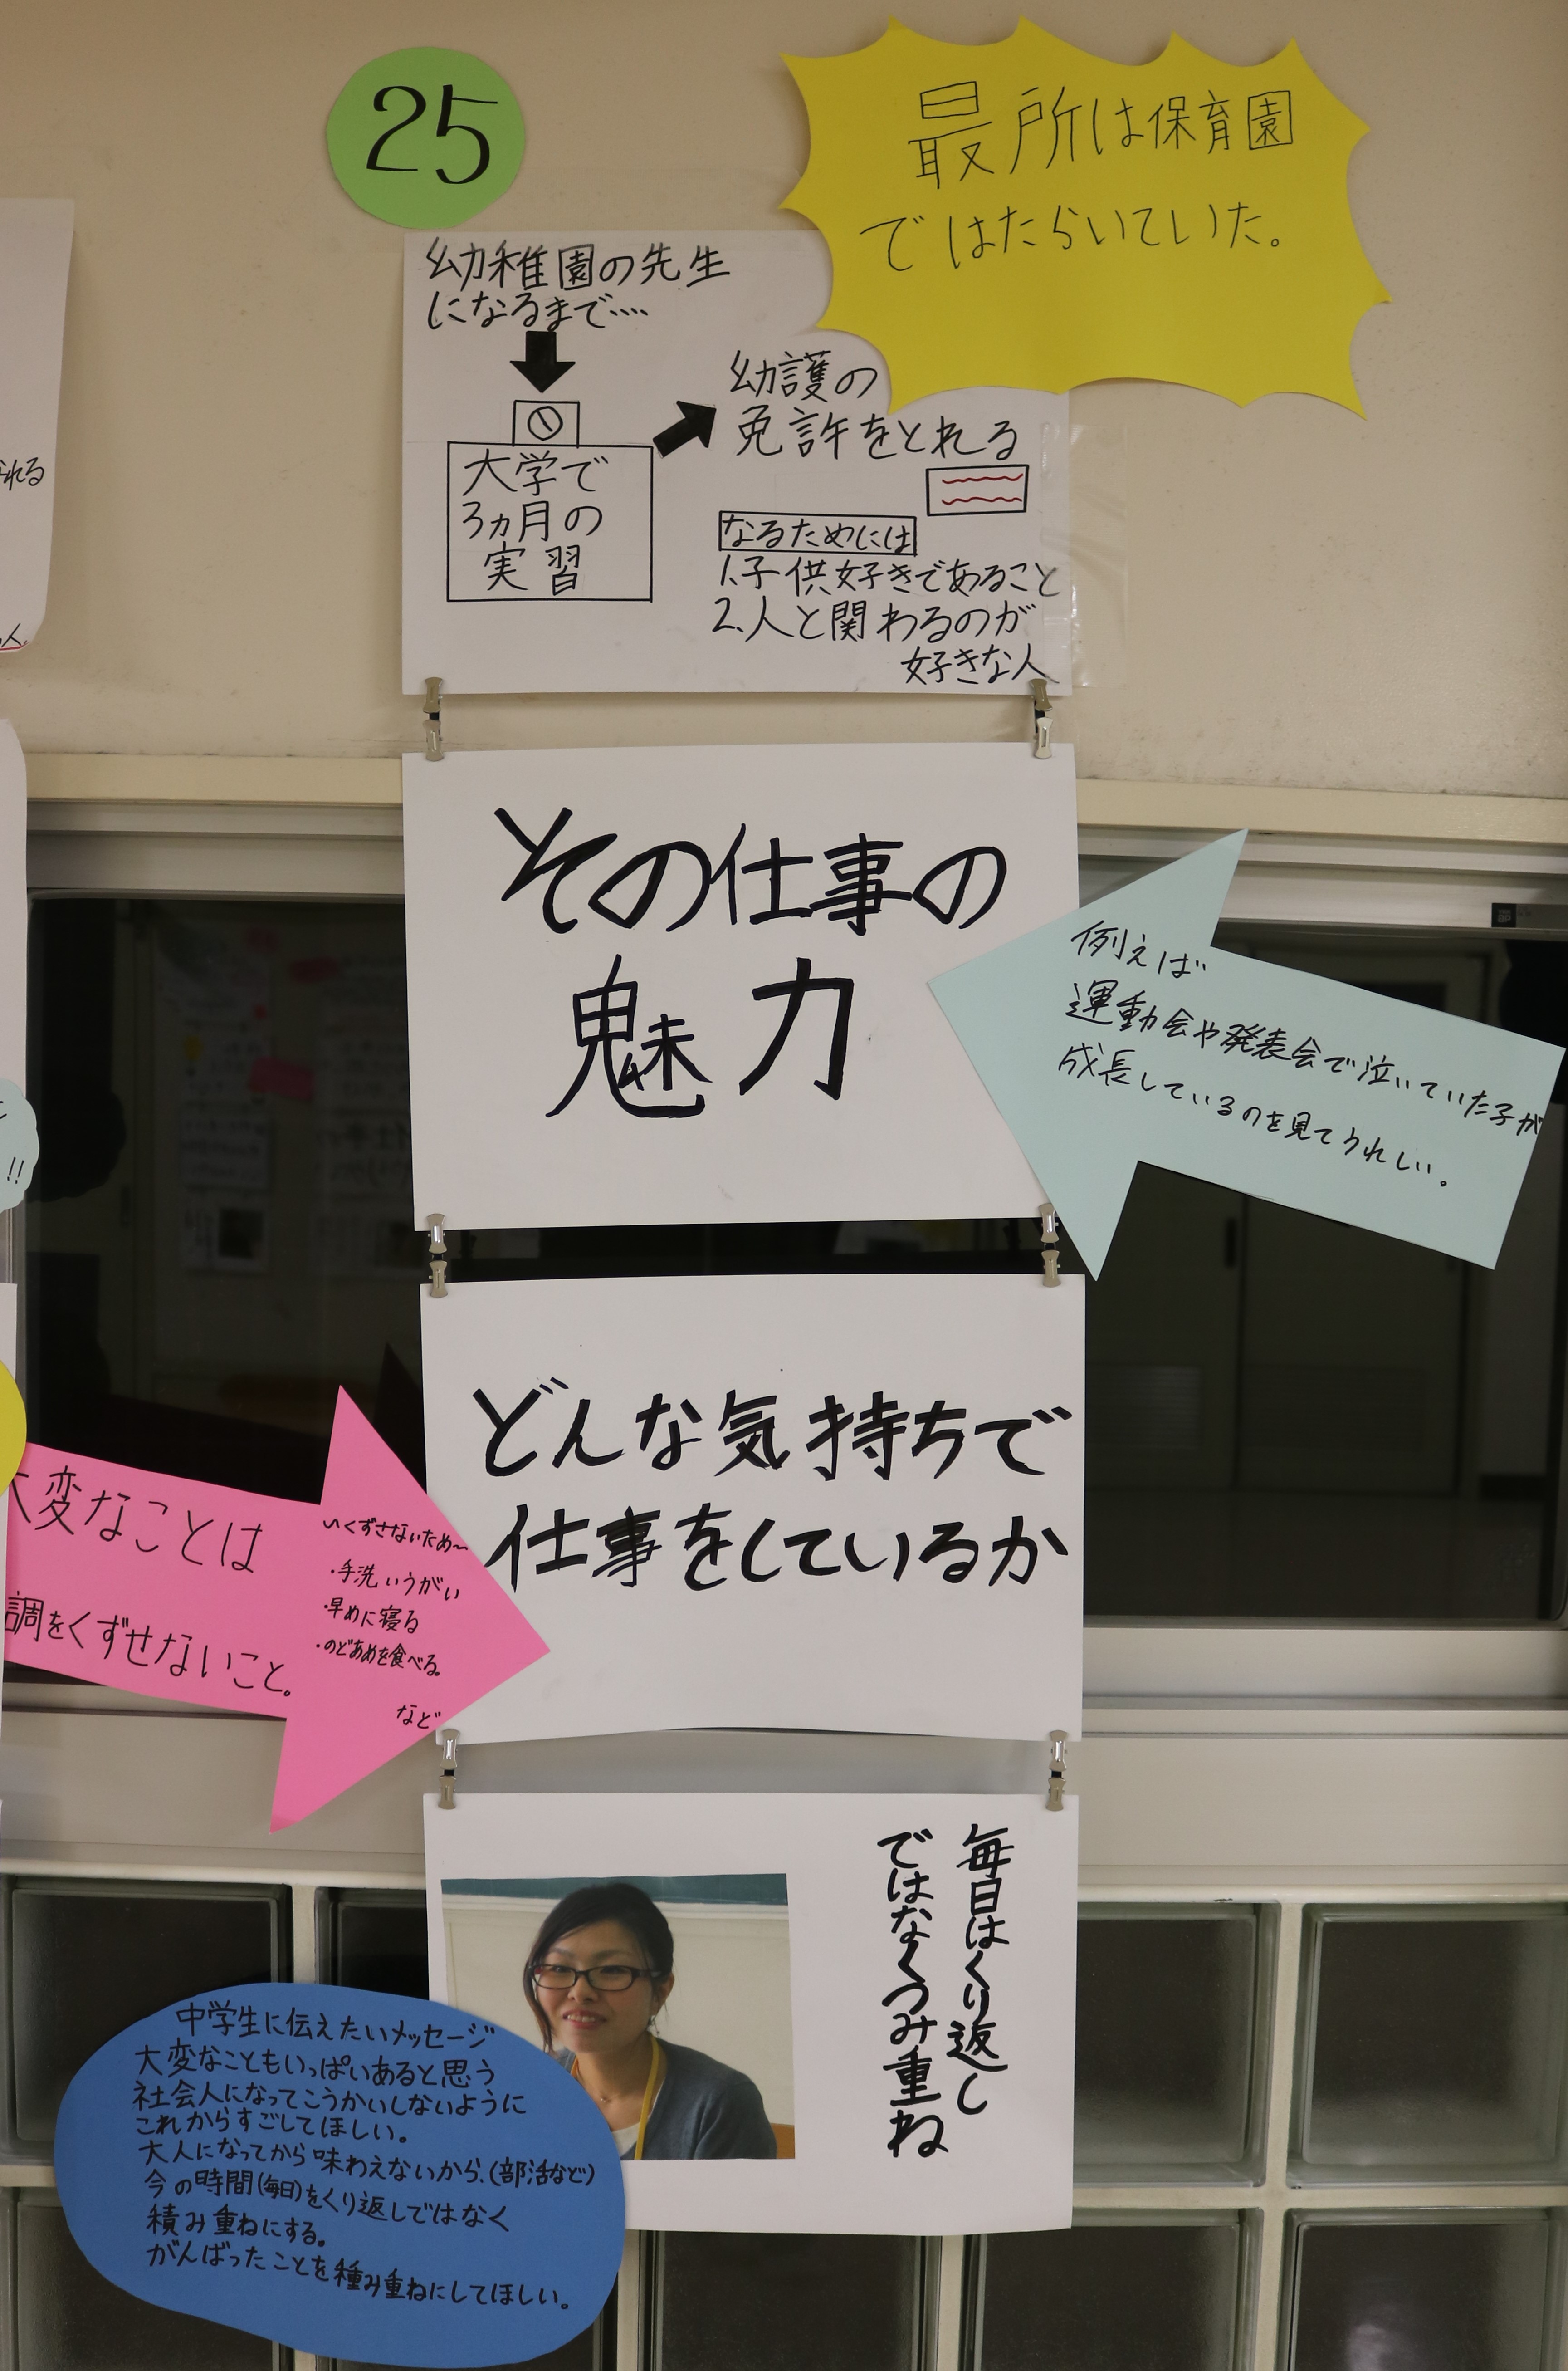 25
最所は保育園
ではたらいていた。
幼稚園の先生
になるまで‥‥
大学で
3ヵ月の
実習
幼護の
免許をとれる
なるためには
1.子供好きであること
2.人と関わるのが
好きな人
その仕事の
魅力
例えば
運動会や発表会で泣いていた子が
成長しているのを見てうれしい。
どんな気持ちで
仕事をしているか
大変なことは
調をくずせないこと。
いくずさないため〜
・手洗いうがい
・早めに寝る
・のどあめを食べる。
など
毎日はくり返し
ではなくつみ重ね
中学生に伝えたいメッセージ
大変なこともいっぱいあると思う
社会人になってこうかいしないように
これからすごしてほしい。
大人になってから味わえないから、(部活など)
今の時間(毎日)をくり返しではなく
積み重ねにする。
がんばったことを種み重ねにしてほしい。
れる
人
!!